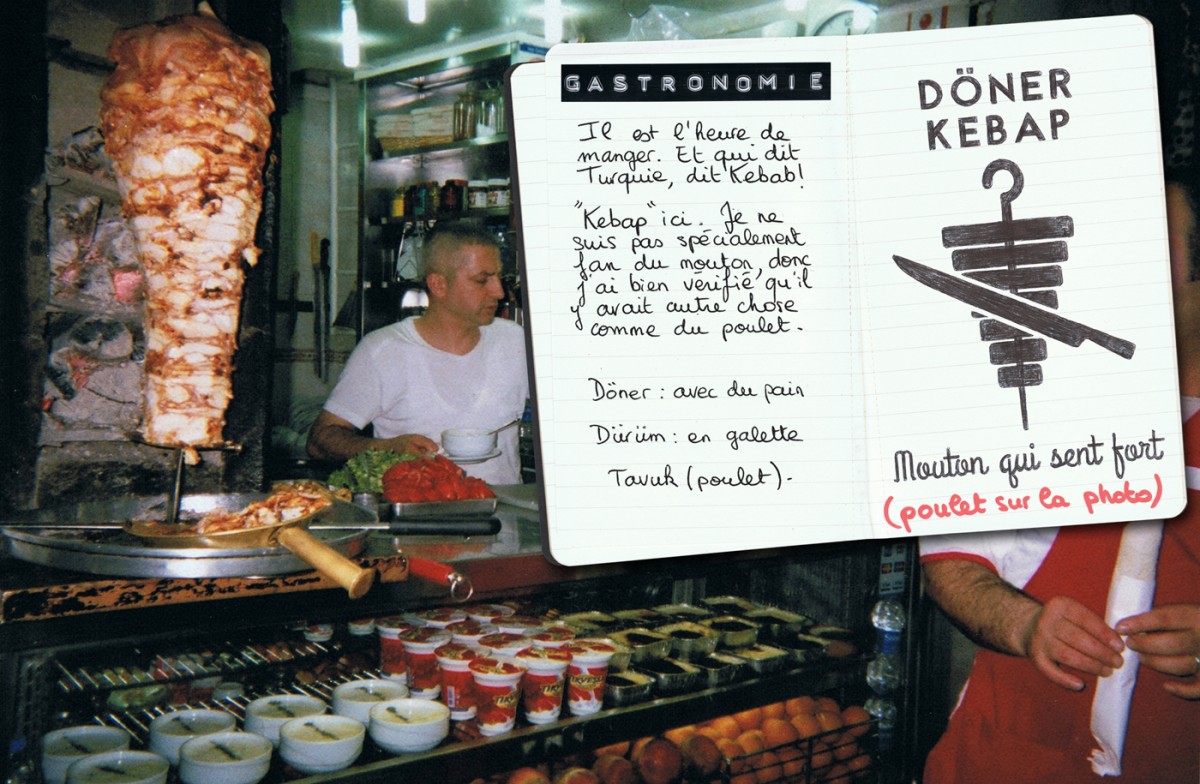 GASTRONOMIE
Il est l'heure de
manger. Et qui dit
Turquie, dit Kebab!
"Kebap" ici. Je ne
suis pas spécialement
fan du mouton, donc
j'ai bien vérifié qu'il
y avait autre chose
comme du poulet.
Döner : avec du pain
Dürüm : en galette
Tavuk (poulet).
DÖNER
KEBAP
Mouton qui sent fort
(poulet sur la photo)